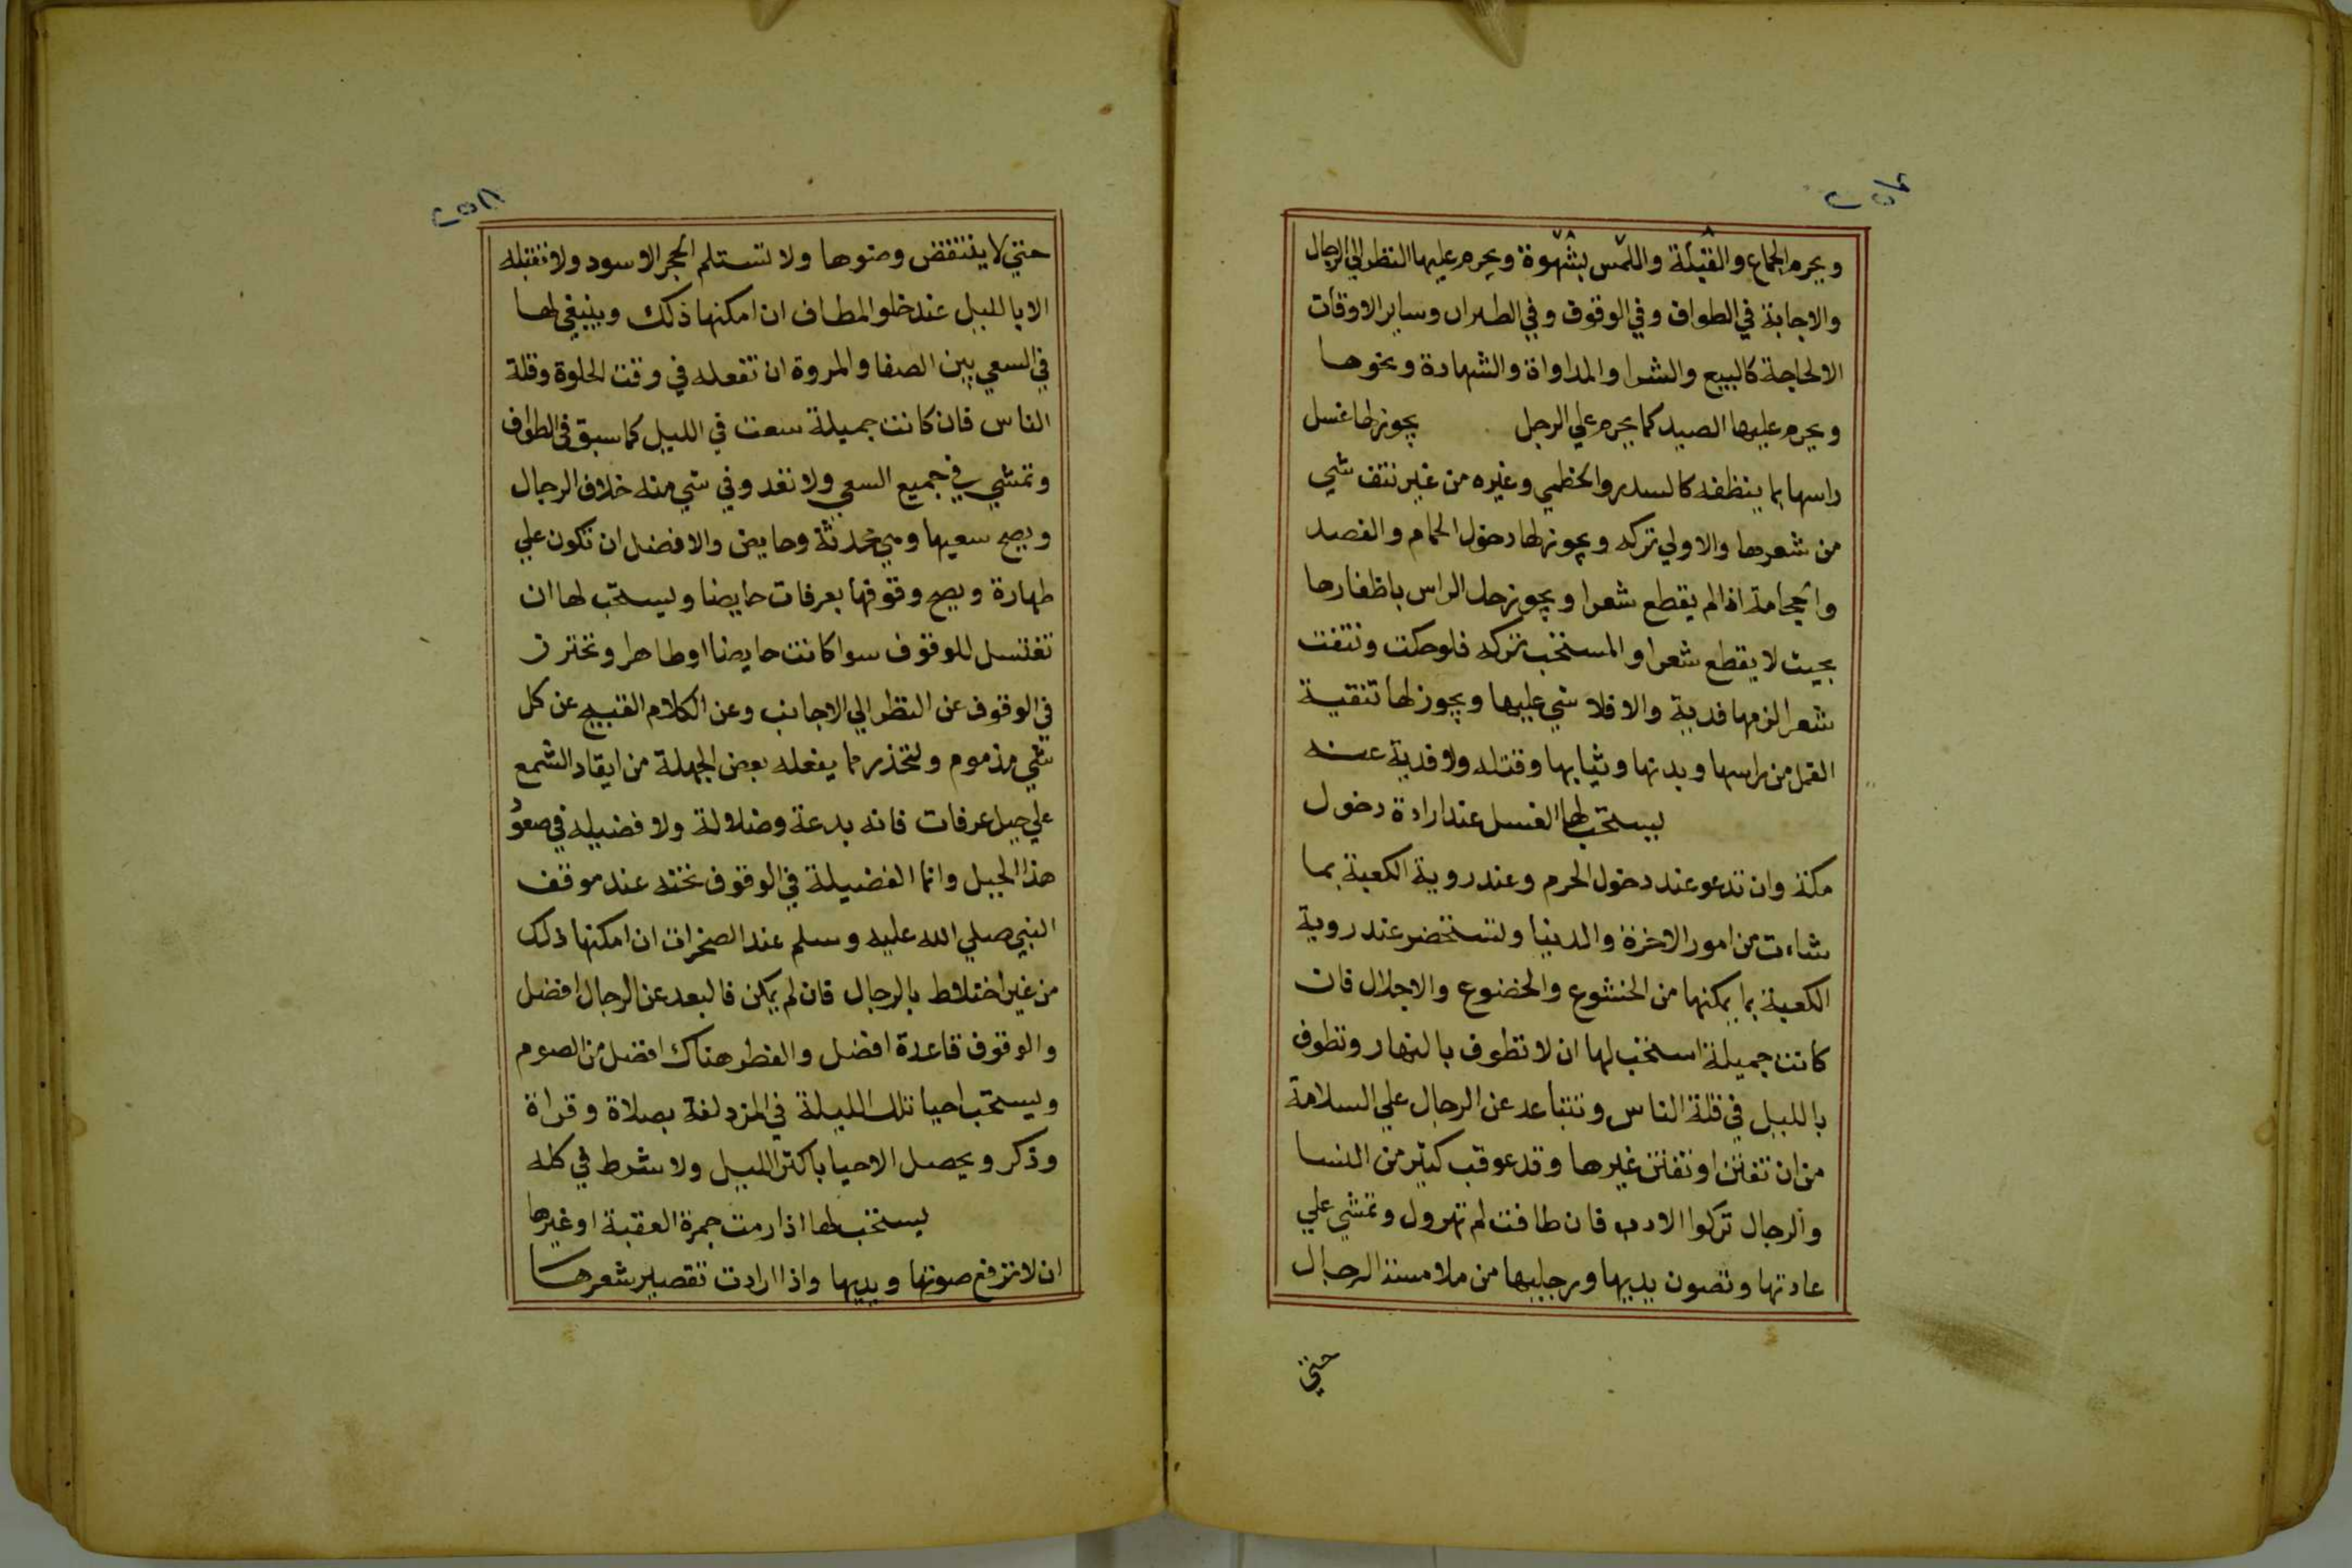 ويحرم الجماع والقبلة واللمس بشهوة ويحرم عليها النظر الي الرجال
والاجابة في الطواف وفي الوقوف وفي الطيران وساير الاوقات
الا لحاجة كالبيع والشرا والمداواة والشهادة ونحوها
ويحرم عليها الصيد كما يحرم علي الرجل يجوز لها غسل
راسها بما ينظفه كالسدر والخطمي وغيره من غير نتف شي
من شعرها والاولي تركه ويجوز لها دخول الحمام والفصد
والحجامة اذا لم يقطع شعرا ويجوز حك الراس باظفارها
بحيث لا يقطع شعرا والمستحب تركه فلو حكت ونتفت
شعرا لزمها فدية والا فلا شي عليها ويجوز لها تنقية
القمل من راسها وبدنها وثيابها وقتله ولا فدية عنه
يستحب لها الغسل عند ارادة دخول
مكة وان تدعو عند دخول الحرم وعند روية الكعبة بما
شاءت من امور الاخرة والدنيا وتستحضر عند روية
الكعبة بما يمكنها من الخشوع والخضوع والاجلال فان
كانت جميلة استحب لها ان لا تطوف بالنهار وتطوف
بالليل في قلة الناس وتتباعد عن الرجال علي السلامة
من ان تفتن او تفتن غيرها وقد عوقب كثير من النسا
والرجال تركوا الادب فان طافت لم تهرول وتمشي علي
عادتها وتصون يديها ورجليها من ملامسة الرجال
حتي
٢٥٨
حتي لا ينتقض وضوها ولا تستلم الحجر الاسود ولا تقبله
الا بالليل عند خلو المطاف ان امكنها ذلك وينبغي لها
في السعي بين الصفا والمروة ان تفعله في وقت الخلوة وقلة
الناس فان كانت جميلة سعت في الليل كما سبق في الطواف
وتمشي في جميع السعي ولا تعدو في شي منه خلاف الرجال
ويصح سعيها وهي محدثة وحايض والافضل ان تكون علي
طهارة ويصح وقوفها بعرفات حايضا ويستحب لها ان
تغتسل للوقوف سوا كانت حايضا او طاهرا وتحترز
في الوقوف عن النظر الي الاجانب وعن الكلام القبيح عن كل
شي مذموم ولتحذر مما يفعله بعض الجهلة من ايقاد الشمع
علي جبل عرفات فانه بدعة وضلالة ولا فضيله في صعو
هذا الجبل وانما الفضيلة في الوقوف تحته عند موقف
النبي صلي الله عليه وسلم عند الصخرات ان امكنها ذلك
من غير اختلاط بالرجال فان لم يمكن فالبعد عن الرجال افضل
والوقوف قاعدة افضل والفطر هناك افضل من الصوم
ويستحب احيا تلك الليلة في المزدلفة بصلاة وقراة
وذكر ويحصل الاحيا باكثر الليل ولا شرط في كله
يستحب لها اذا رمت جمرة العقبة او غيرها
ان لا ترفع صوتها ويديها واذا ارادت تقصير شعرها